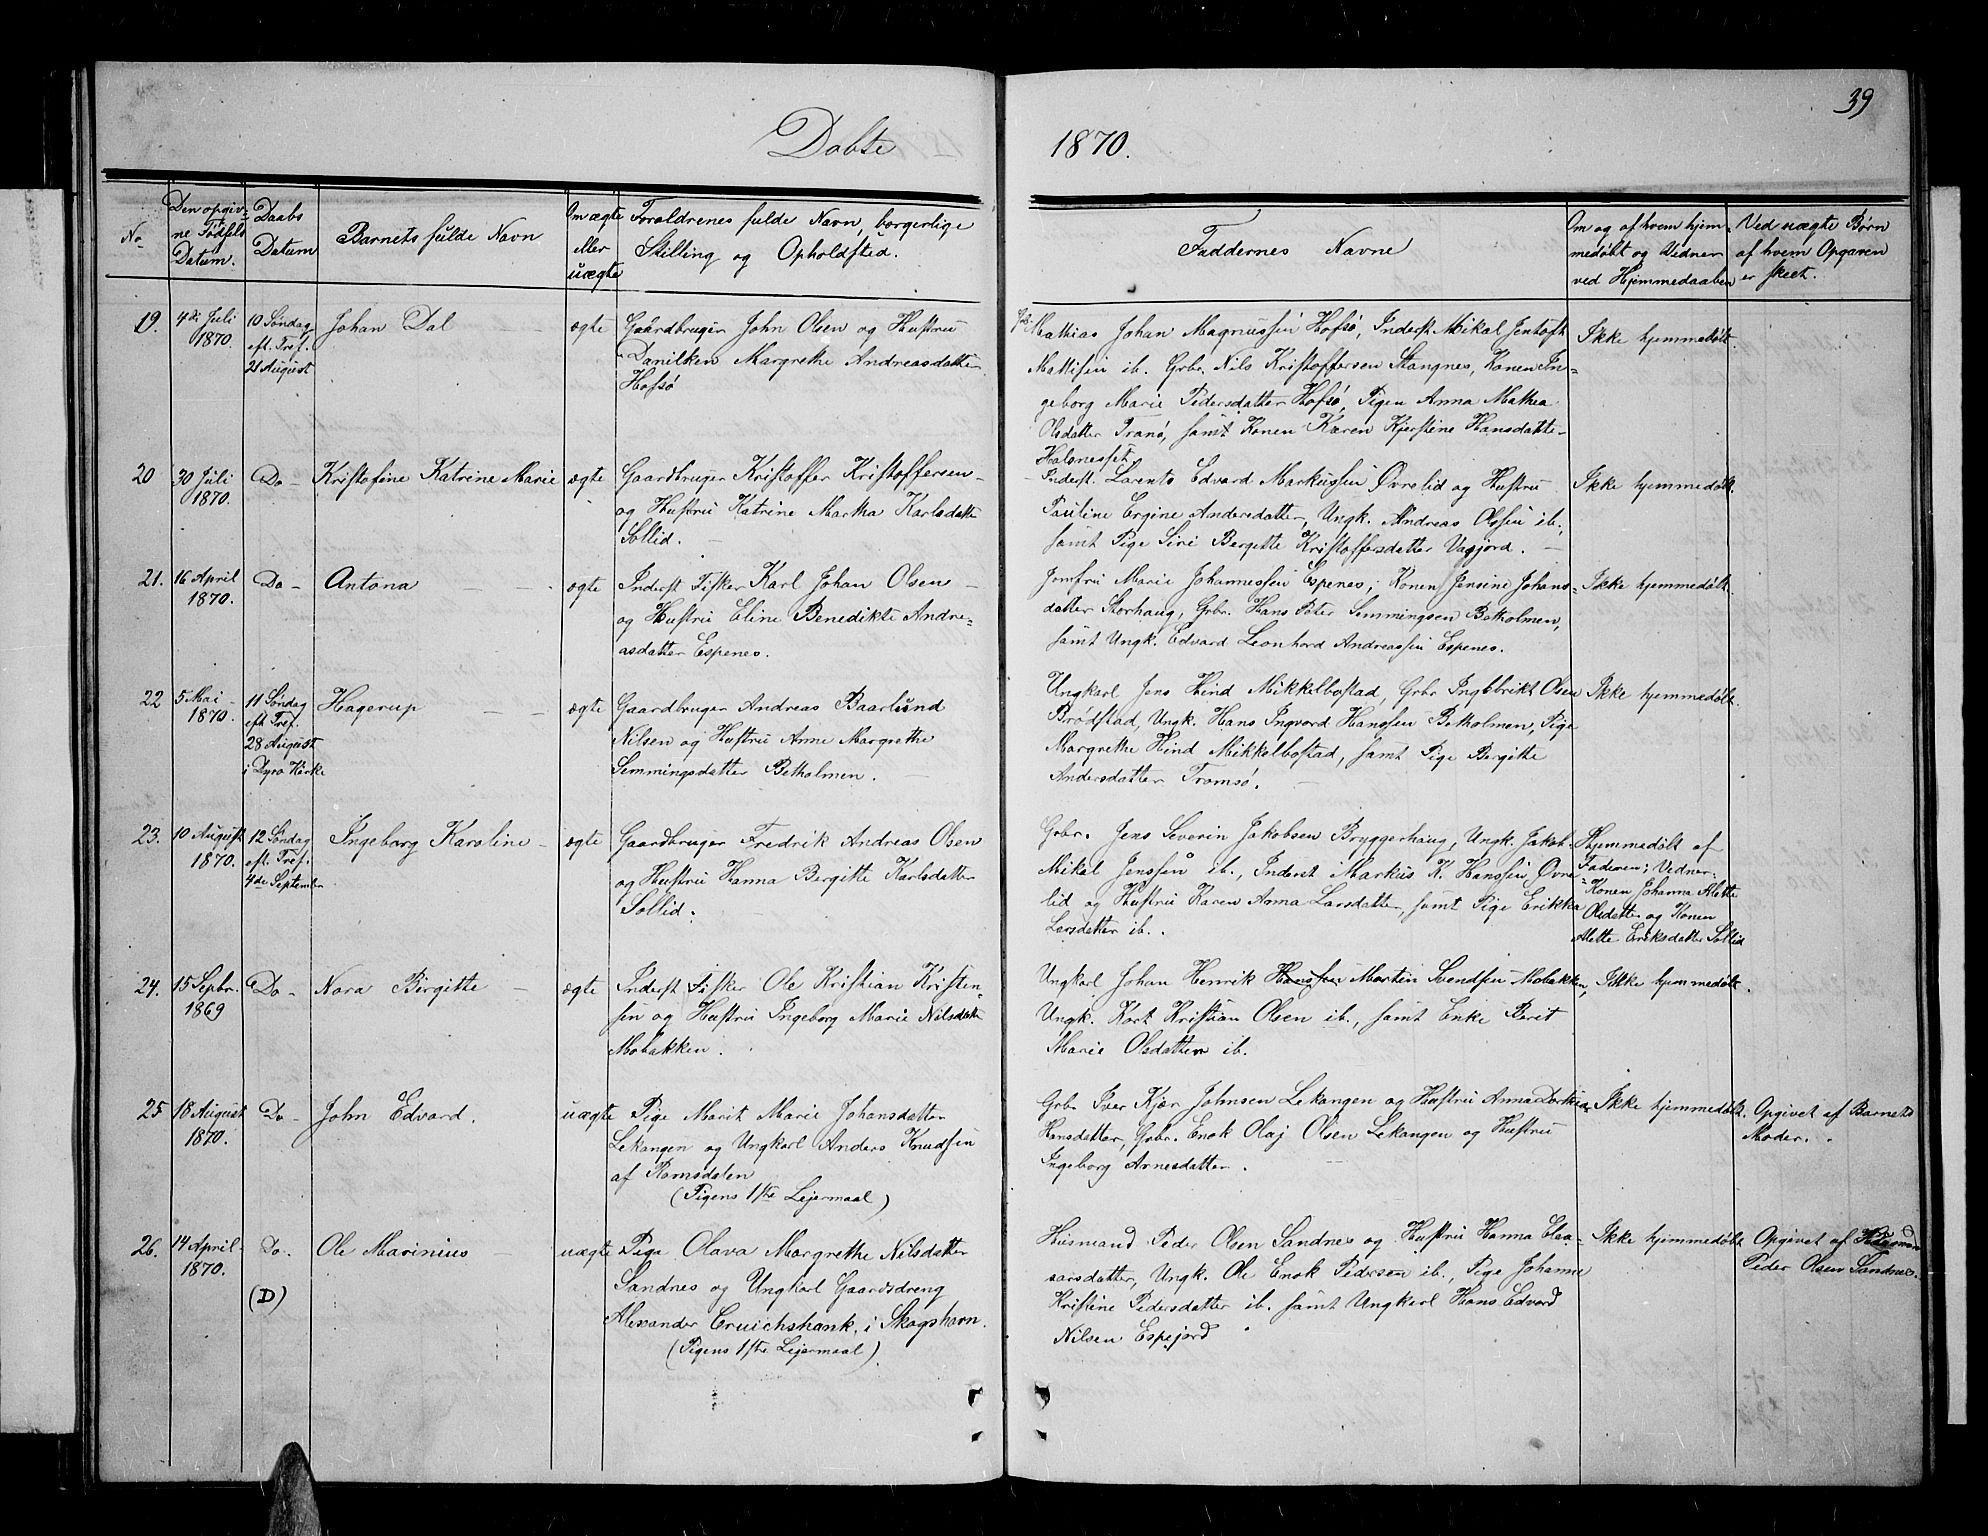 39
Døbte 1870.
No
Den opgiv-
ne Fødsels
Datum.
Daabs
Datum
Barnets fulde Navn
Om ægte
eller
uægte
Forældrenes fulde Navn, borgerlige
Stilling og Opholdsted.
Faddernes Navne
Om og af hvem hjem-
medøbt og Vidner
ved Hjemmedaaben
Ved uægte Børn
af hvem Opgaven
er skeet.
19.
4de Juli
1870.
10 Søndag
eft. Tref.
21 August
Johan Dal
ægte
Gaardbruger John Olsen og Hustru
Danilken Margrethe Andreasdatter
Hofsø
Mathias Johan Magnussen Hofsø, Inderst Mikal Jentoft
Mathisen ib. Grbr. Nils Kristoffersen Stangnes, Konen In-
geborg Marie Pedersdatter Hofsø, Pigen Anna Mathea
Olsdatter Tranø, samt Konen Karen Kjerstine Hansdatte-
Halsnesset.
Ikke hjemmedøbt.
20
30 Juli
1870.
Do-
Kristofine Katrine Marie
ægte
Gaardbruger Kristoffer Kristoffersen-
og Hustru Katrine Martha Karlsdatte
Sollid.
Inderst. Lorents Edvard Markussen Øvrelid og Hustru
Pauline Ergine Andersdatter, Ungk. Andreas Olssen ib.,
samt Pige Sine Bergitte Kristoffersdatter Vagjord.
Ikke hjemmedøbt.
21.
16 April
1870.
Do-
Antona
ægte
Inderst Fisker Karl Johan Olsen
og Hustru Eline Benedikte Andre=
asdatter Espenes.
Jomfru Marie Johannessen Espenes, Konen Jensine Johans=
datter Storhaug, Grbr. Hans Peter Semmingsen Betholmen,
samt Ungk. Edvard Leonhard Andreassen Espenes.
Ikke hjemmedøbt.
22
5 Mai
1870.
11 Søndag
eft Tref.
28 August
i Dyrø Kirke
Hagerup
ægte
Gaardbruger Andreas Baarlund
Nilsen og Hustru Anne Margrethe
Semmingsdatter Betholmen.
Ungkarl Jens Hind Mikkelbostad, Grbr Ingebrikt Olsen
Brødstad, Ungk. Hans Ingvard Hanssen Betholmen, Pige
Margrethe Hind Mikkelbostad, samt Pige Bergitte
Andersdatter Tromsø.
Ikke hjemmedøbt.
23.
10 August
1870.
12 Søndag
eft. Tref.
4de September
Ingeborg Karoline
ægte
Gaardbruger Fredrik Andreas Olsen
og Hustru Hanna Bergitte Karlsdatter
Sollid.
Grbr. Jens Severin Jakobsen Bryggerhaug, Ungk. Jakob
Mikal Jenssen ib., Inderst Markus K. Hanssen, Øvre
lid og Hustru Karen Anna Larsdatter, samt Pige Erikka
Larsdatter ib.
Hjemmedøbt af
Faderen; Vidner
Konen Johanna Alette
Olsdatter og Konen
Alette Eriksdatter Sollid
24.
15 Sepbr.
1869
Do-
Nora Birgitte
ægte
Inderst Fisker Ole Kristian Kristen=
sen og Hustru Ingeborg Marie Nilsdatte
Mobakken.
Ungkarl Johan Henrik Hanssen Martin Svendsen Mobakken,
Ungk. Kort Kristian Olsen ib., samt Enke Berit
Marie Olsdatter ib.
Ikke hjemmedøbt.
25
18 August
1870.
Do-
John Edvard.
uægte
Pige Marit Marie Johansdatter
Lekangen og Ungkarl Anders Knudsen
af Romsdalen
(Pigens 1ste Lejermaal)
Grbr. Iver Kjær Johnsen Lekangen og Hustru Anna Dorthea
Hansdatter, Grbr. Enok Olaj Olsen Lekangen og Hustru
Ingeborg Arnesdatter.
Ikke hjemmedøbt.
Opgivet af Barnets
Moder.
26.
14 April
1870.
Do.
(D)
Ole Marinius
uægte
Pige Olava Margrethe Nilsdatter
Sandnes og Ungkarl Gaardsdreng
Alexander Cruichshank, i Skogshavn.
(Pigens 1ste Lejermaal)
Husmand Peder Olsen Sandnes og Hustru Hanna Elea-
sarsdatter, Ungk. Ole Enok Pedersen ib., Pige Johanne
Kristine Pedersdatter ib. samt Ungkarl Hans Edvard
Nilsen Espejord
Ikke hjemmedøbt
Opgivet af
Peder Olsen Sandnes.